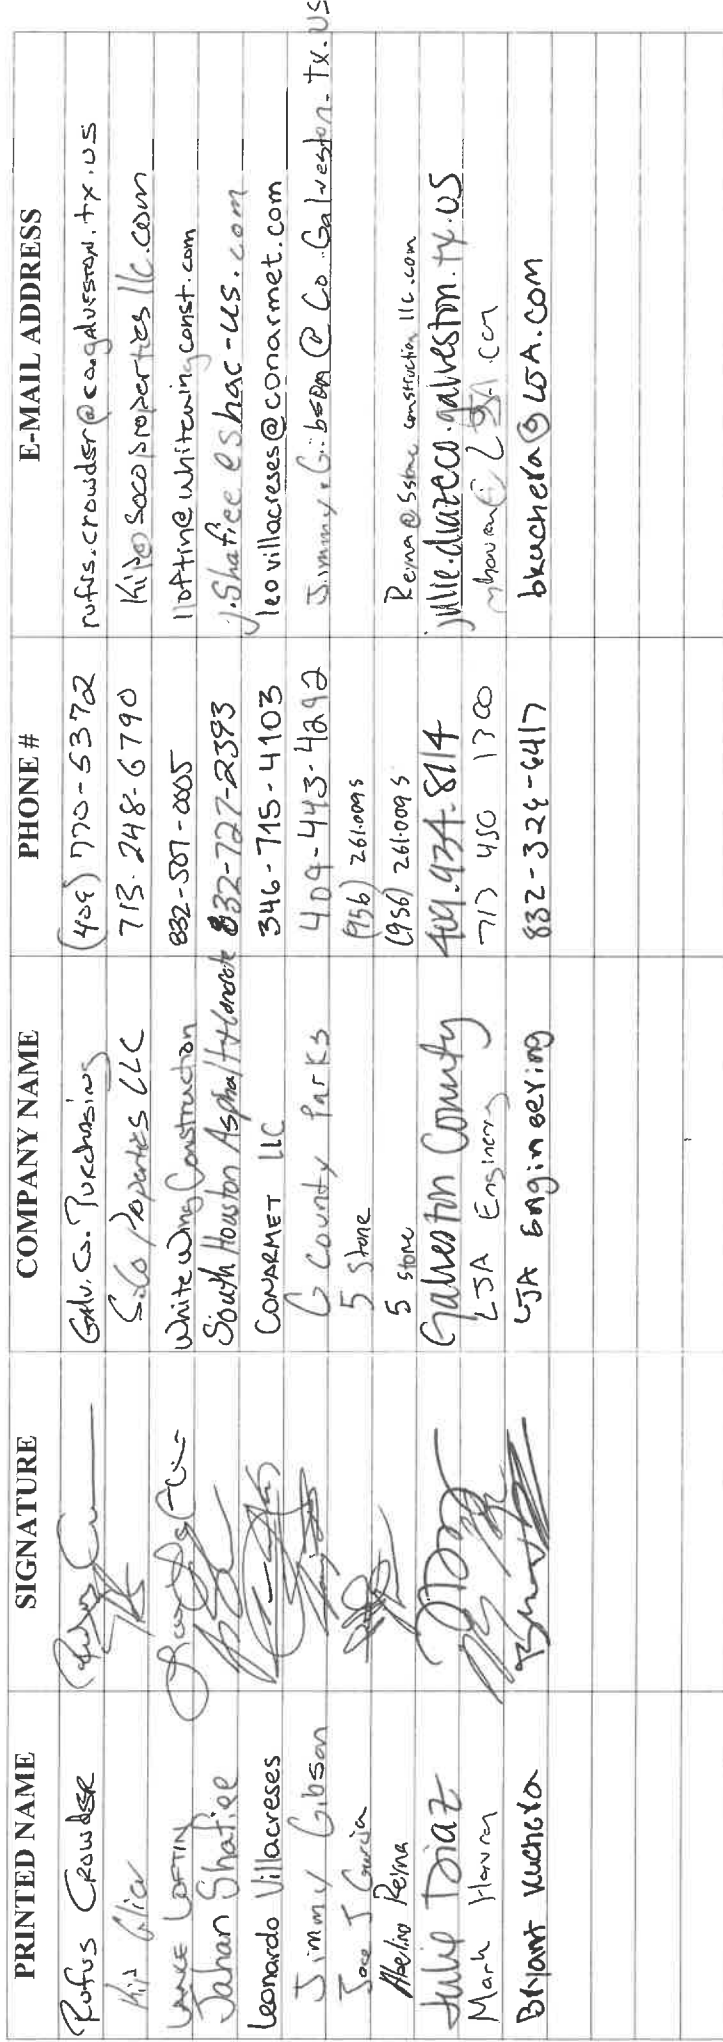 PRINTED NAME SIGNATURE COMPANY NAME PHONE # E-MAIL ADDRESS
Rufus Crowder Galv. Co. Purchasing (409) 770-5372 rufus.crowder@co.galveston.tx.us
Kip SoCo Properties LLC 713-248-6790 Kip@socopropertiesllc.com
Lance Loftin White Wing Construction 832-507-0005 lloftin@whitewingconst.com
Jahan Shafiee South Houston Asphalt & Concrete 832-727-2393 j.shafiee@shac-us.com
Leonardo Villacreses CONARMET LLC 346-715-4103 leovillacreses@conarmet.com
Jimmy Gibson G County Parks 409-443-4292 Jimmy.Gibson@Co.Galveston.Tx.US
Jose J Garcia 5 Stone (956) 261.0095
Abelino Reyna 5 stone (956) 261.0095 Reyna@5stone construction llc.com
Julie Diaz Galveston County 409.934.8114 julie.diaz@co.galveston.tx.us
Mark LJA Engineering 713 450 1300
Bryant Kuchera LJA Engineering 832-326-6417 bkuchera@LJA.com